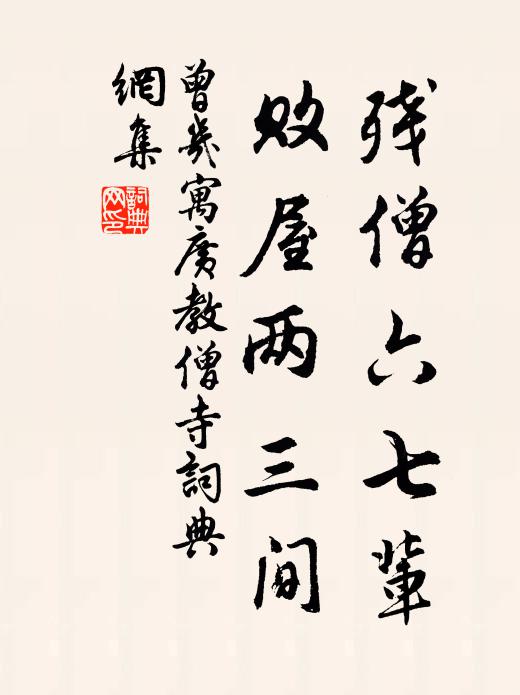 残僧六七辈
败屋两三间
曾几寓廣教僧寺詞典
網集
詞典网印